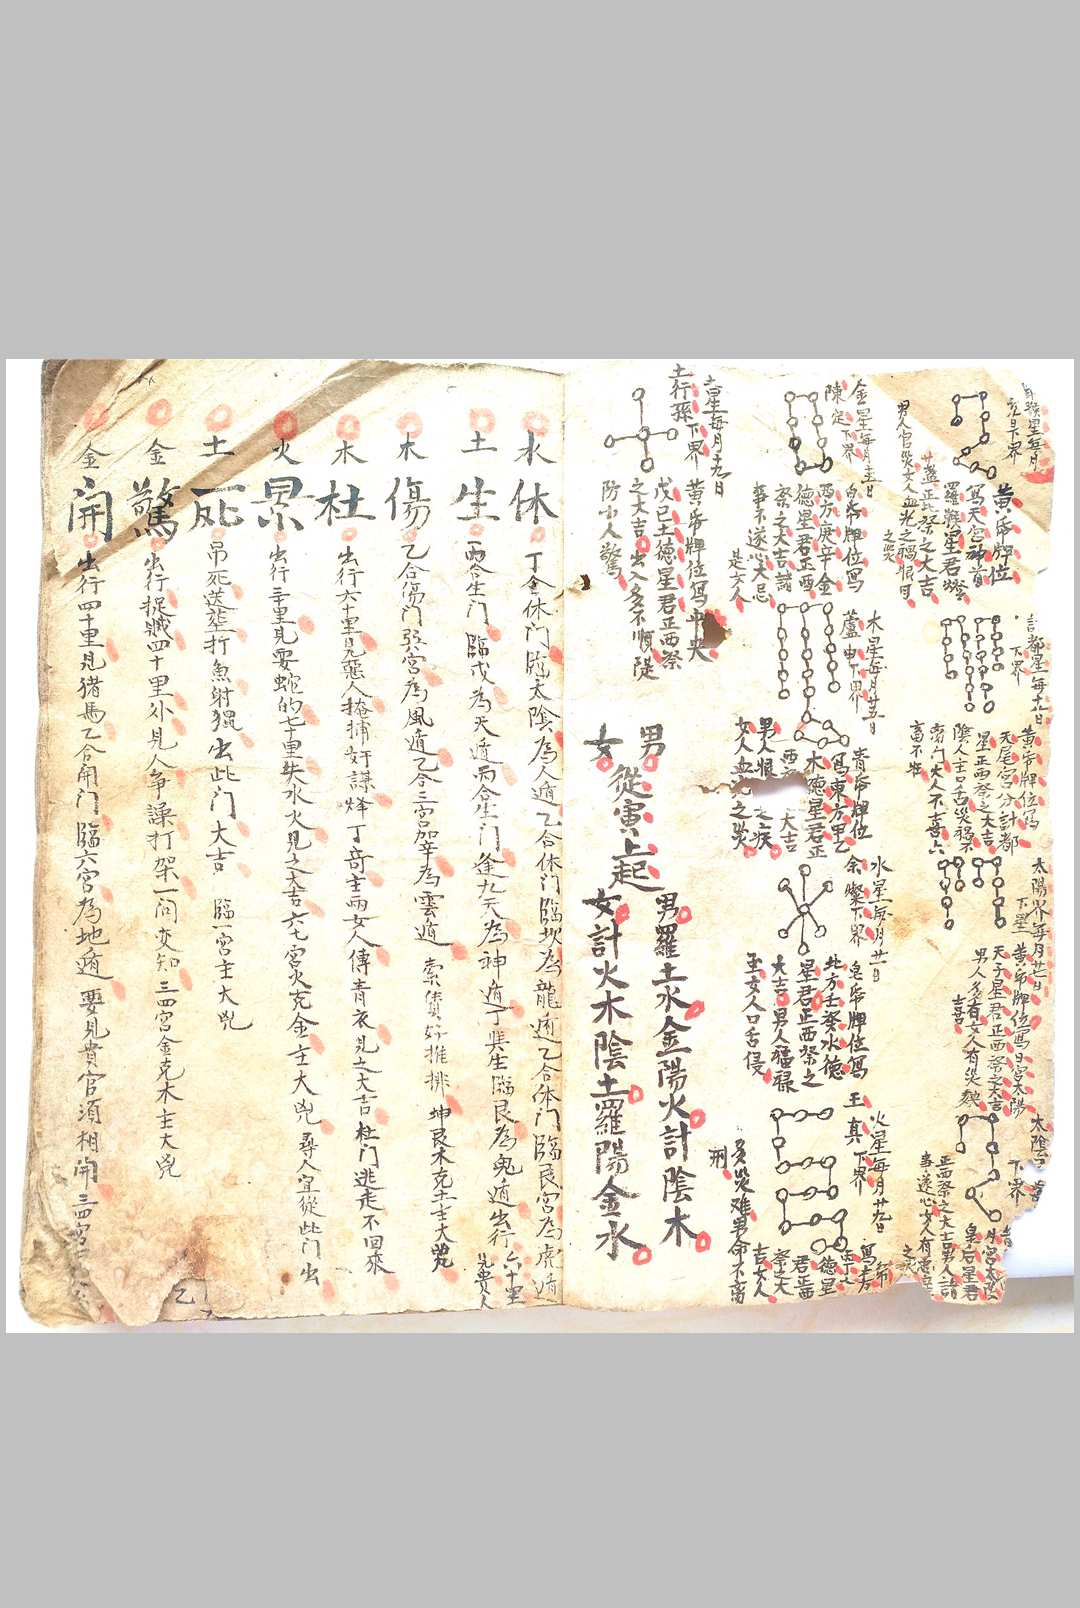 黃帝牌位
寫天宮神首
羅睺星君燈
廿盞正北祭之大吉
男人官災女人血光之禍恨目
之災
計都星每十八日
下界
黃帝牌位寫
天尾宮分計都
星正西祭之大吉
陰人主口舌災禍不
太陽
每月廿七日
黃帝牌位寫日宮太陽
天子星君正西祭之大吉
男人多有
女人有災
喜
太陰
下界
月宮太陰
皇后星君
正西祭之大吉男人諸
事遂心女人有
之災
金星每月十五日
下界
白帝牌位寫
西方庚辛金
德星君正西
祭之大吉諸
事不遂心大忌
是女人
木星每月廿五日
下界
青帝牌位
寫東方甲乙
木德星君正
西
大吉
男人恨
之疾
女人血
之災
水星每月廿一日
余燦下界
皂帝牌位寫
北方壬癸水德
星君正西祭之
大吉男人福祿
至女人口舌侵
火星每月廿九日
王真下界
德星
君正西
祭之大
吉女人
多災难男命不
刑
土星每月十九日
土行孫下界
黃帝牌位寫中央
戊己土德星君正西祭
之大吉出入多不順隄
防小人驚
男
女
從寅上起
男羅土水金陽火計陰木
女計火木陰土羅陽金水
水
休
丁合休门臨太陰為人遁乙合休门臨坎為龍遁乙合休门臨艮宮為虎遁
土
生
丙合生门臨戊為天遁丙合生门逢九天為神遁丁與生臨艮為鬼遁出行六十里
見貴人
木
傷
乙合傷门巽宮為風遁乙合三宮加辛為雲遁 索債好推排坤艮木克土主大兇
木
杜
出行六十里見惡人掩捕奸謀烽丁奇主兩女人傳青衣見之大吉杜门逃走不回來
火
景
出行三里見要蛇的七十里失水火見之大吉六七宮火克金主大兇 尋人宜從此门出
土
死
吊死送塟打魚射獵出此门大吉 臨一宮主大兇
金
驚
出行捉賊四十里外見人争譟打架一问交知三四宮金克木主大兇
金
開
出行四十里見猪馬乙合開门臨六宮為地遁 要見貴官須相開三四宮